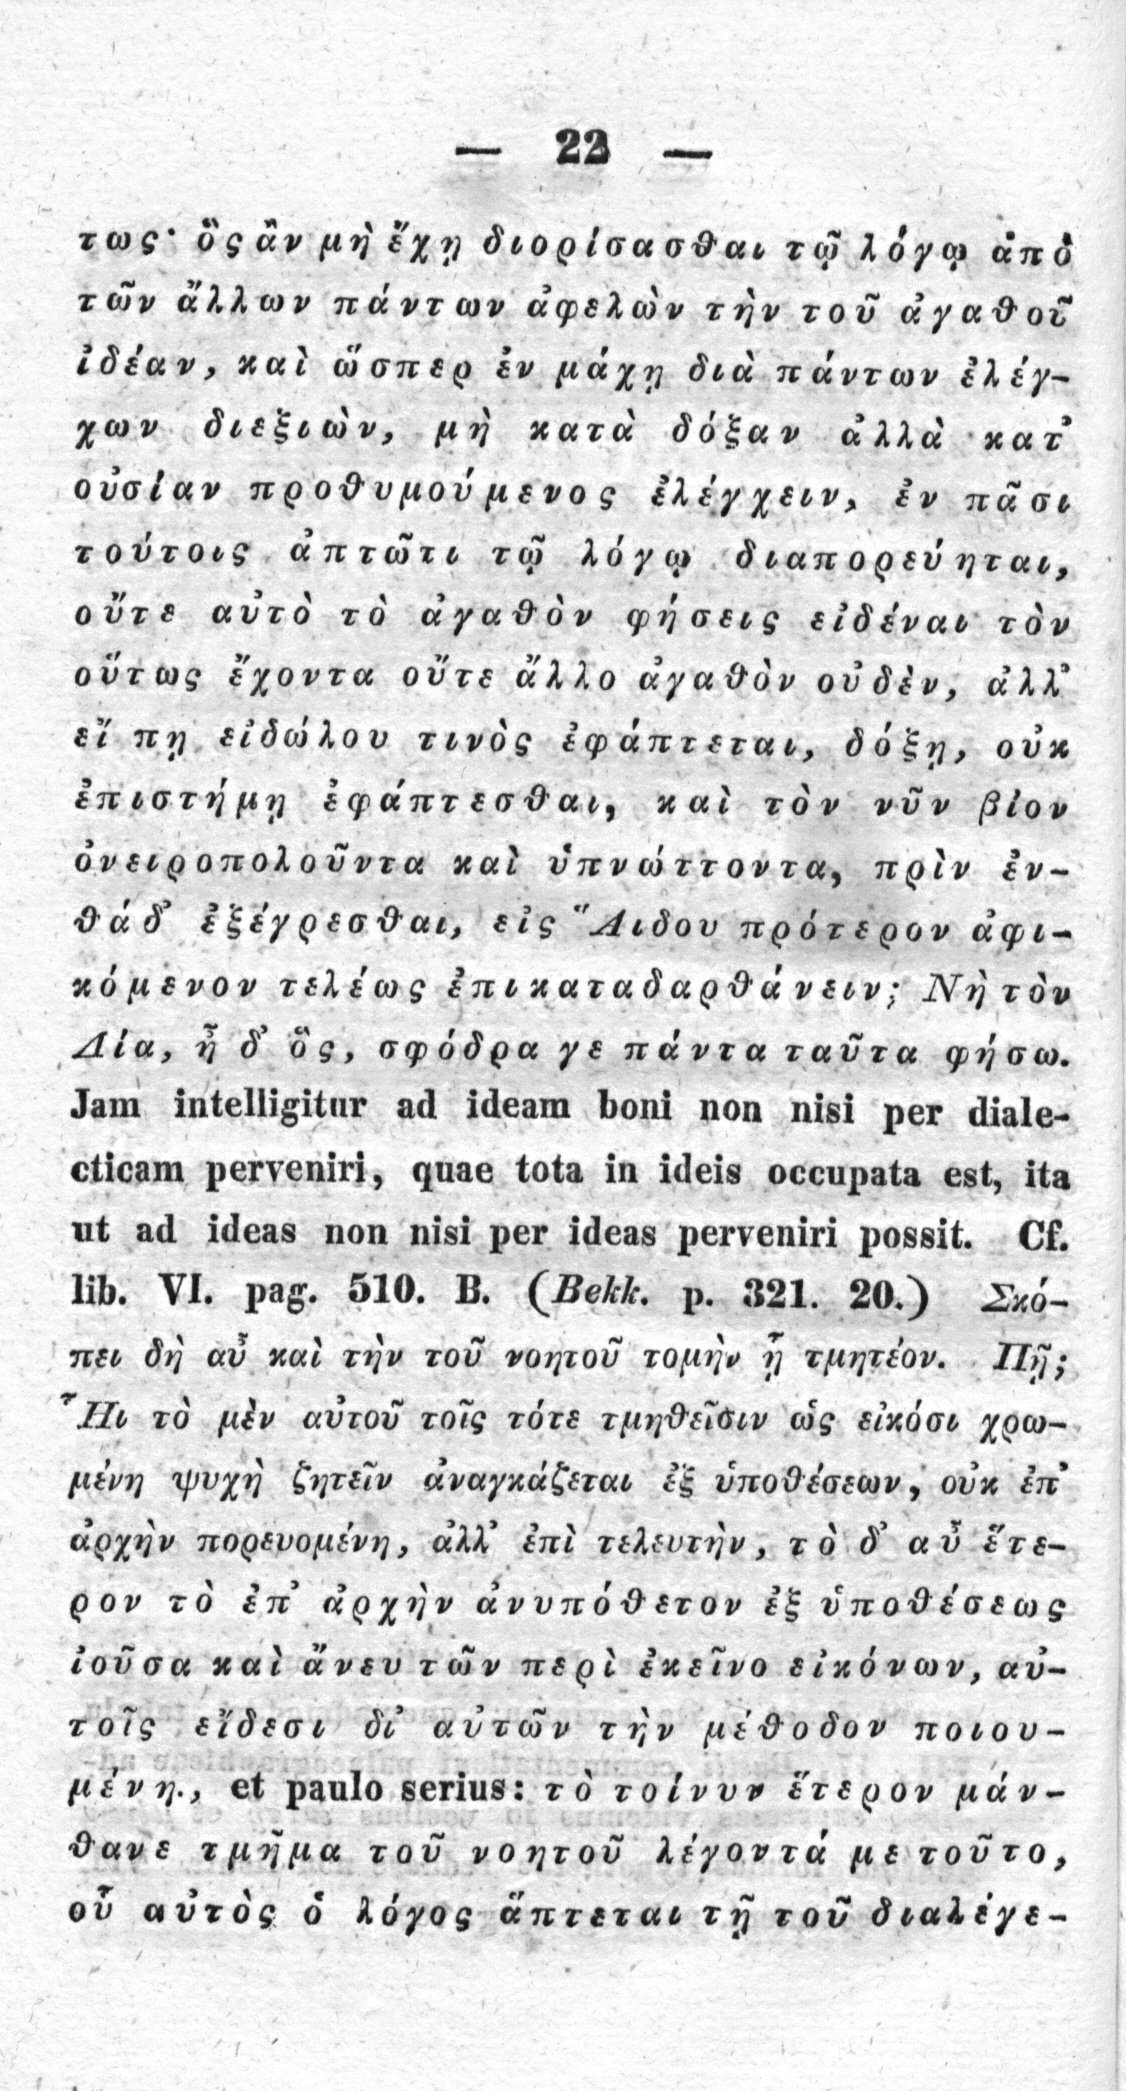 — 22 —
τως· ὃς ἂν μὴ ἔχῃ διορίσασθαι τῷ λόγῳ ἀπὸ
τῶν ἄλλων πάντων ἀφελὼν τὴν τοῦ ἀγαθοῦ
ἰδέαν, καὶ ὥσπερ ἐν μάχῃ διὰ πάντων ἐλέγ-
χων διεξιὼν, μὴ κατὰ δόξαν ἀλλὰ κατ᾽
οὐσίαν προθυμούμενος ἐλέγχειν, ἐν πᾶσι
τούτοις ἀπτῶτι τῷ λόγῳ διαπορεύηται,
οὔτε αὐτὸ τὸ ἀγαθὸν φήσεις εἰδέναι τὸν
οὕτως ἔχοντα οὔτε ἄλλο ἀγαθὸν οὐδὲν, ἀλλ᾽
εἴ πῃ εἰδώλου τινὸς ἐφάπτεται, δόξῃ, οὐκ
ἐπιστήμῃ ἐφάπτεσθαι, καὶ τὸν νῦν βίον
ὀνειροπολοῦντα καὶ ὑπνώττοντα, πρὶν ἐν-
θάδ᾽ ἐξέγρεσθαι, εἰς Ἅιδου πρότερον ἀφι-
κόμενον τελέως ἐπικαταδαρθάνειν; Νὴ τὸν
Δία, ἦ δ᾽ ὃς, σφόδρα γε πάντα ταῦτα φήσω.
Jam intelligitur ad ideam boni non nisi per diale-
cticam perveniri, quae tota in ideis occupata est, ita
ut ad ideas non nisi per ideas perveniri possit. Cf.
lib. VI. pag. 510. B. (Bekk. p. 321. 20.) Σκό-
πει δὴ αὖ καὶ τὴν τοῦ νοητοῦ τομὴν ᾗ τμητέον. Πῇ;
Ἧι τὸ μὲν αὐτοῦ τοῖς τότε τμηθεῖσιν ὡς εἰκόσι χρω-
μένη ψυχὴ ζητεῖν ἀναγκάζεται ἐξ ὑποθέσεων, οὐκ ἐπ᾽
ἀρχὴν πορευομένη, ἀλλ᾽ ἐπὶ τελευτὴν, τὸ δ᾽ αὖ ἕτε-
ρον τὸ ἐπ᾽ ἀρχὴν ἀνυπόθετον ἐξ ὑποθέσεως
ἰοῦσα καὶ ἄνευ τῶν περὶ ἐκεῖνο εἰκόνων, αὐ-
τοῖς εἴδεσι δι᾽ αὐτῶν τὴν μέθοδον ποιου-
μένη., et paulo serius: τὸ τοίνυν ἕτερον μάν-
θανε τμῆμα τοῦ νοητοῦ λέγοντά με τοῦτο,
οὗ αὐτὸς ὁ λόγος ἅπτεται τῇ τοῦ διαλέγε-